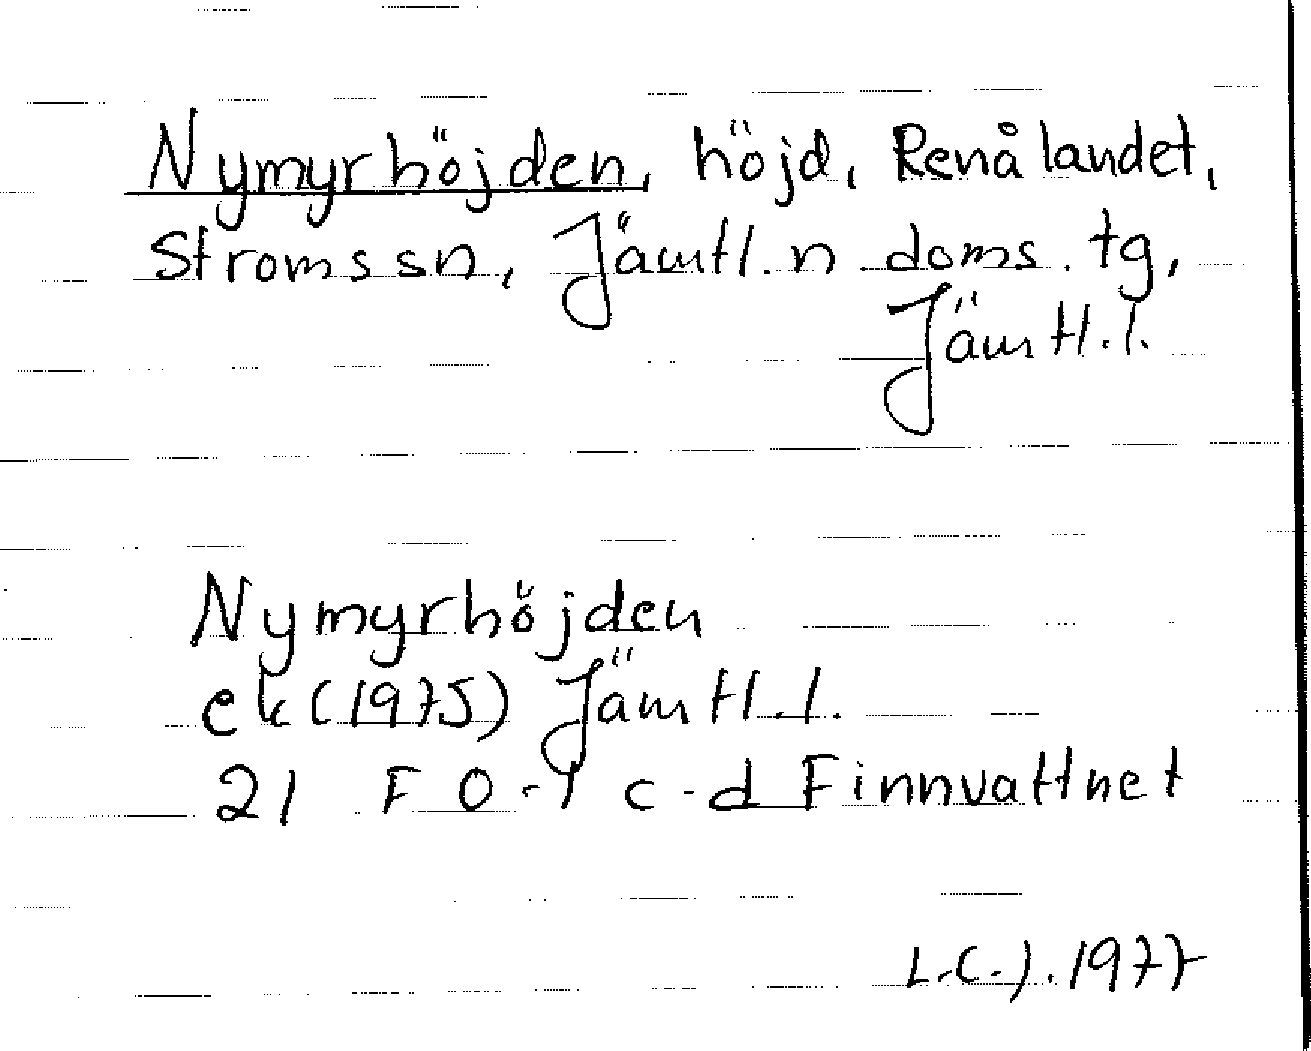 Nymyrhöjden, höjd, Renålandet,
Stroms sn, Jämtl. n doms. tg,
Jämtl. l.
Nymyrhöjden
ek (1975) Jämtl. l.
21 F 0-1 c-d Finnvattnet
L.C.J. 1977